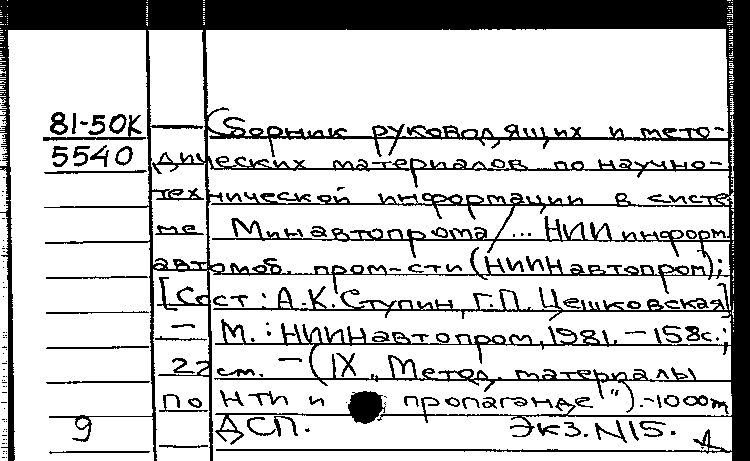 81-50К Сборник руководящих и мето-
5540 дических материалов по научно-
технической информации в систе
ме Минавтопрома/... НИИ информ.
автомоб. пром-сти (НИИНавтопром);
[Сост: А.К. Ступин, Г.П. Цешковская]
- М.: НИИНавтопром, 1981. - 158с.;
22 см. - (IX „Метод. материалы
по НТИ и пропаганде").-1000т
9 ДСП. Экз. N15.